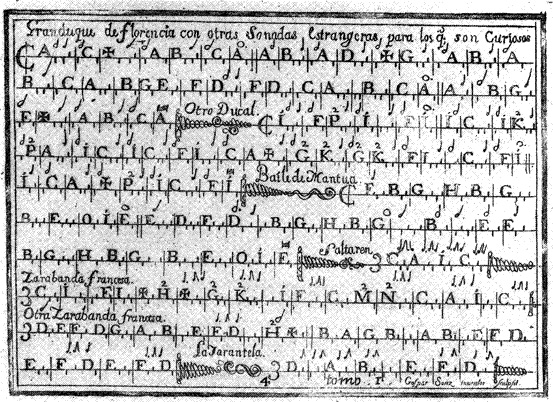 Granduque de florencia con otras Sonadas Estrangeras, para los q̃ son Curiosos
C A C ✠ A B C A A B A D ✠ G A B A
B C A B G E F D F D C A B C A A B G
E ✠ A B C A Otro Ducal C I F P I F I C I K
P A I C I C F I C A ✠ G K G K F I C F I
I C A ✠ P I C F I Baile de Mantua C E B G H B G
B E O I E E D E D B G H B G B E E
B G H B G B E O I E Saltaren 3 C A I C
Zarabanda francesa.
3 C I F I ✠ H ✠ G K I F C M N C A I C
Otra Zarabanda francesa.
3 D E F D G A B E F D H ✠ B A G B A B E F D
E F D E F D La Tarantela 3 D A B E F D
4. tomo. 1. Gaspar Sanz inventor sculpsit.